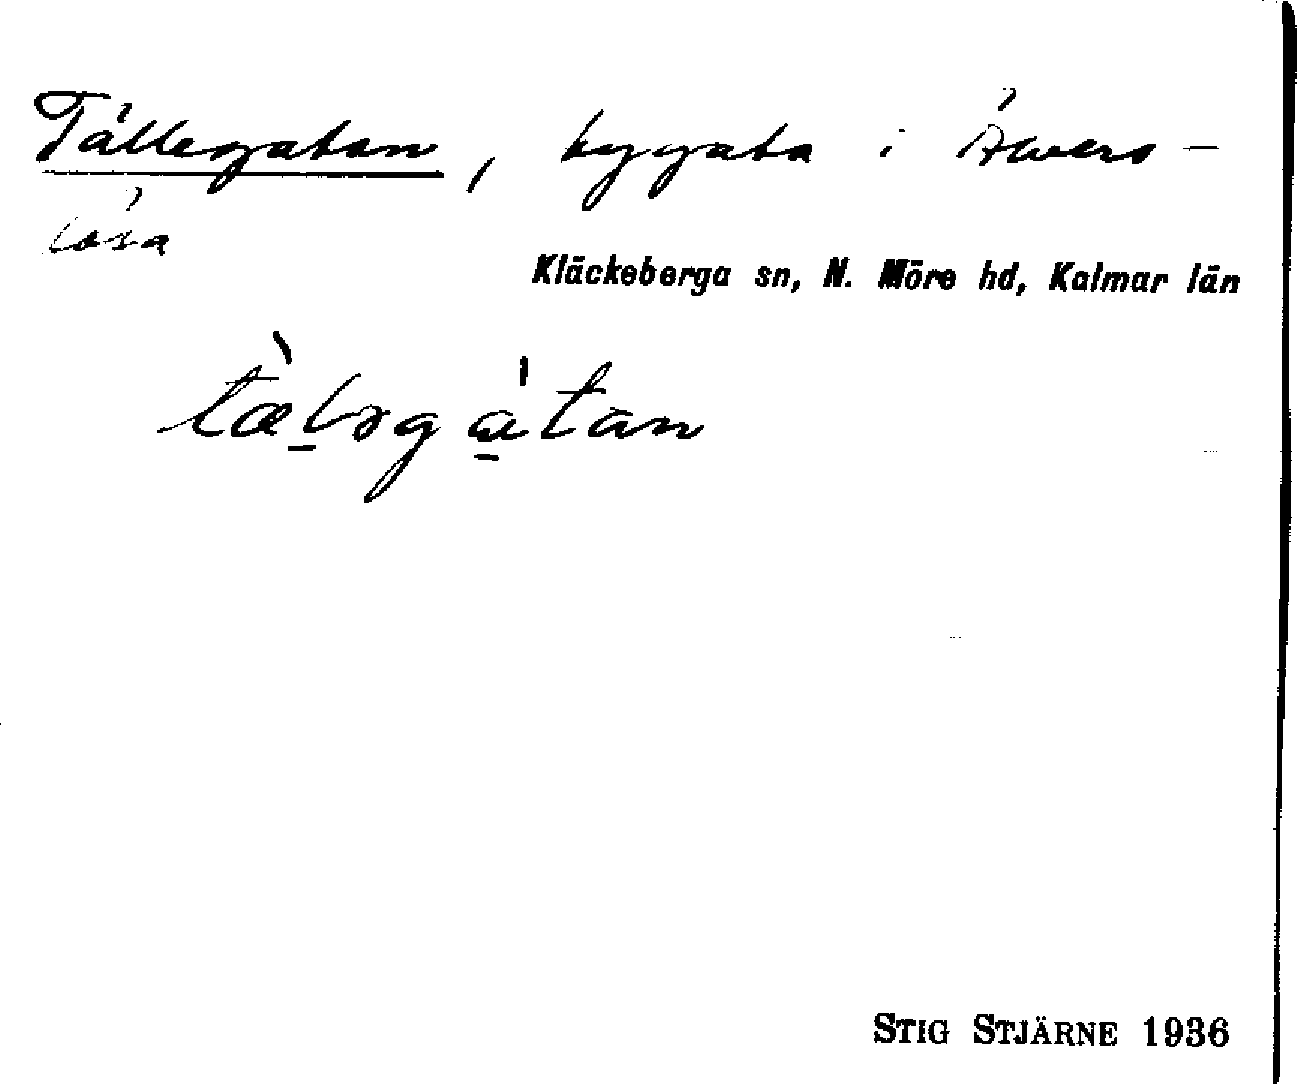 Tällegatan, bygata i Älvers-
lösa
Kläckeberga sn, N. Möre hd, Kalmar län
tæ̀lǝgátan
STIG STJÄRNE 1936